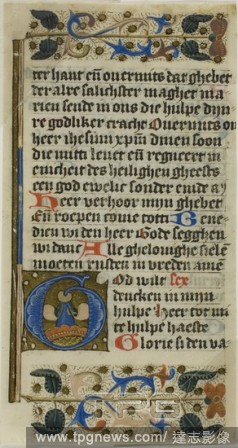 ter hant eñ overmits dat ghebet
der alre salichster maghet ma
rien sende in ons die hulpe dijn
re godliker cracht Overmits on
heer ihesum xpm dinen soon
die mitti levet eñ regneert in
enicheit des heilighen gheests
een god ewelic sonder einde a
Heer verhoor mijn ghebet
Eñ roepen come totti Bene
dien wi den heer Gode segghen
wi danc Alle ghelovighe siele
moeten rusten in vreden amē
God wilt
dencken in mijn
hulpe Heer tot mi
te hulpe haeste
Glorie si den va
www.tpgnews.com/達志影像